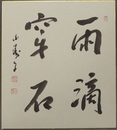 雨滴
穿石